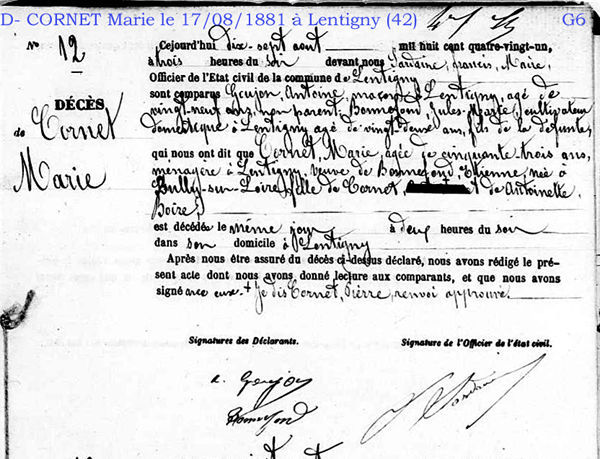 D- CORNET Marie le 17/08/1881 à Lentigny (42) G6
N° 12
DÉCÈS
de Cornet
Marie
Cejourd'hui dix-sept aout mil huit cent quatre-vingt-un,
à trois heures du soir devant nous francis, Maire,
Officier de l'Etat civil de la commune de Lentigny
sont comparus Goujon, Antoine, maçon à Lentigny, agé de
vingt-neuf ans, non parent, Bonnefond, Jules-Marie, cultivateur
domestique à Lentigny agé de vingt-deux ans, fils de la defunte,
qui nous ont dit que Cornet, Marie, agée de cinquante-trois ans,
menagère à Lentigny, veuve de Bonnefond, Etienne, née à
Bully-sur-Loire, fille de Cornet, et de Antoinette
Boire
est décédée le même jour à deux heures du soir
dans son domicile à Lentigny
Après nous être assuré du décès ci-dessus déclaré, nous avons rédigé le pré-
sent acte dont nous avons donné lecture aux comparants, et que nous avons
signé avec eux. + Je dis Cornet, Pierre, renvoi approuvé.
Signatures des Déclarants. Signature de l'Officier de l'état civil.
a. Goujon
Bonnefond